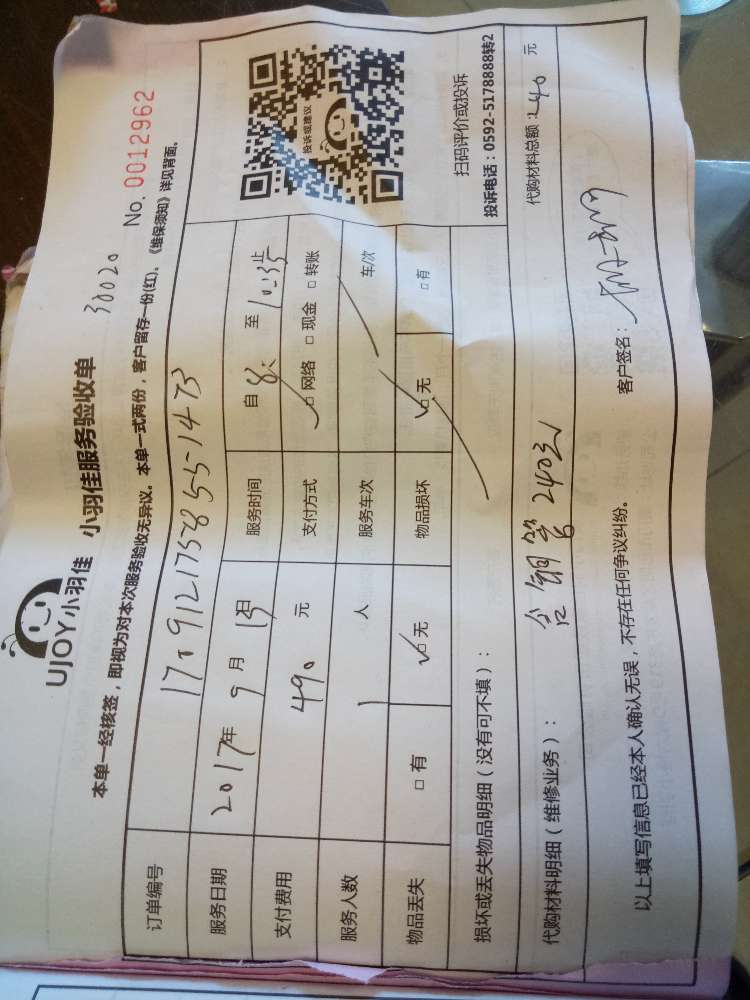 UJOY小羽佳 小羽佳服务验收单 30020
No. 0012962
本单一经核签，即视为对本次服务验收无异议。本单一式两份，客户留存一份(红)。《维保须知》详见背面。
订单编号 170912175855-1473
服务日期 2017年9月13日 服务时间 自 8: 至 10:35止
支付费用 490元 支付方式 □网络 □现金 □转账
服务人数 1 人 服务车次 车/次
物品丢失 □有 □无 物品损坏 □无 □有
投诉或建议
扫码评价或投诉
投诉电话：0592-5178888转2
损坏或丢失物品明细（没有可不填）：
代购材料明细（维修业务）： 含铜管240元 代购材料总额：240元
以上填写信息已经本人确认无误，不存在任何争议纠纷。 客户签名：